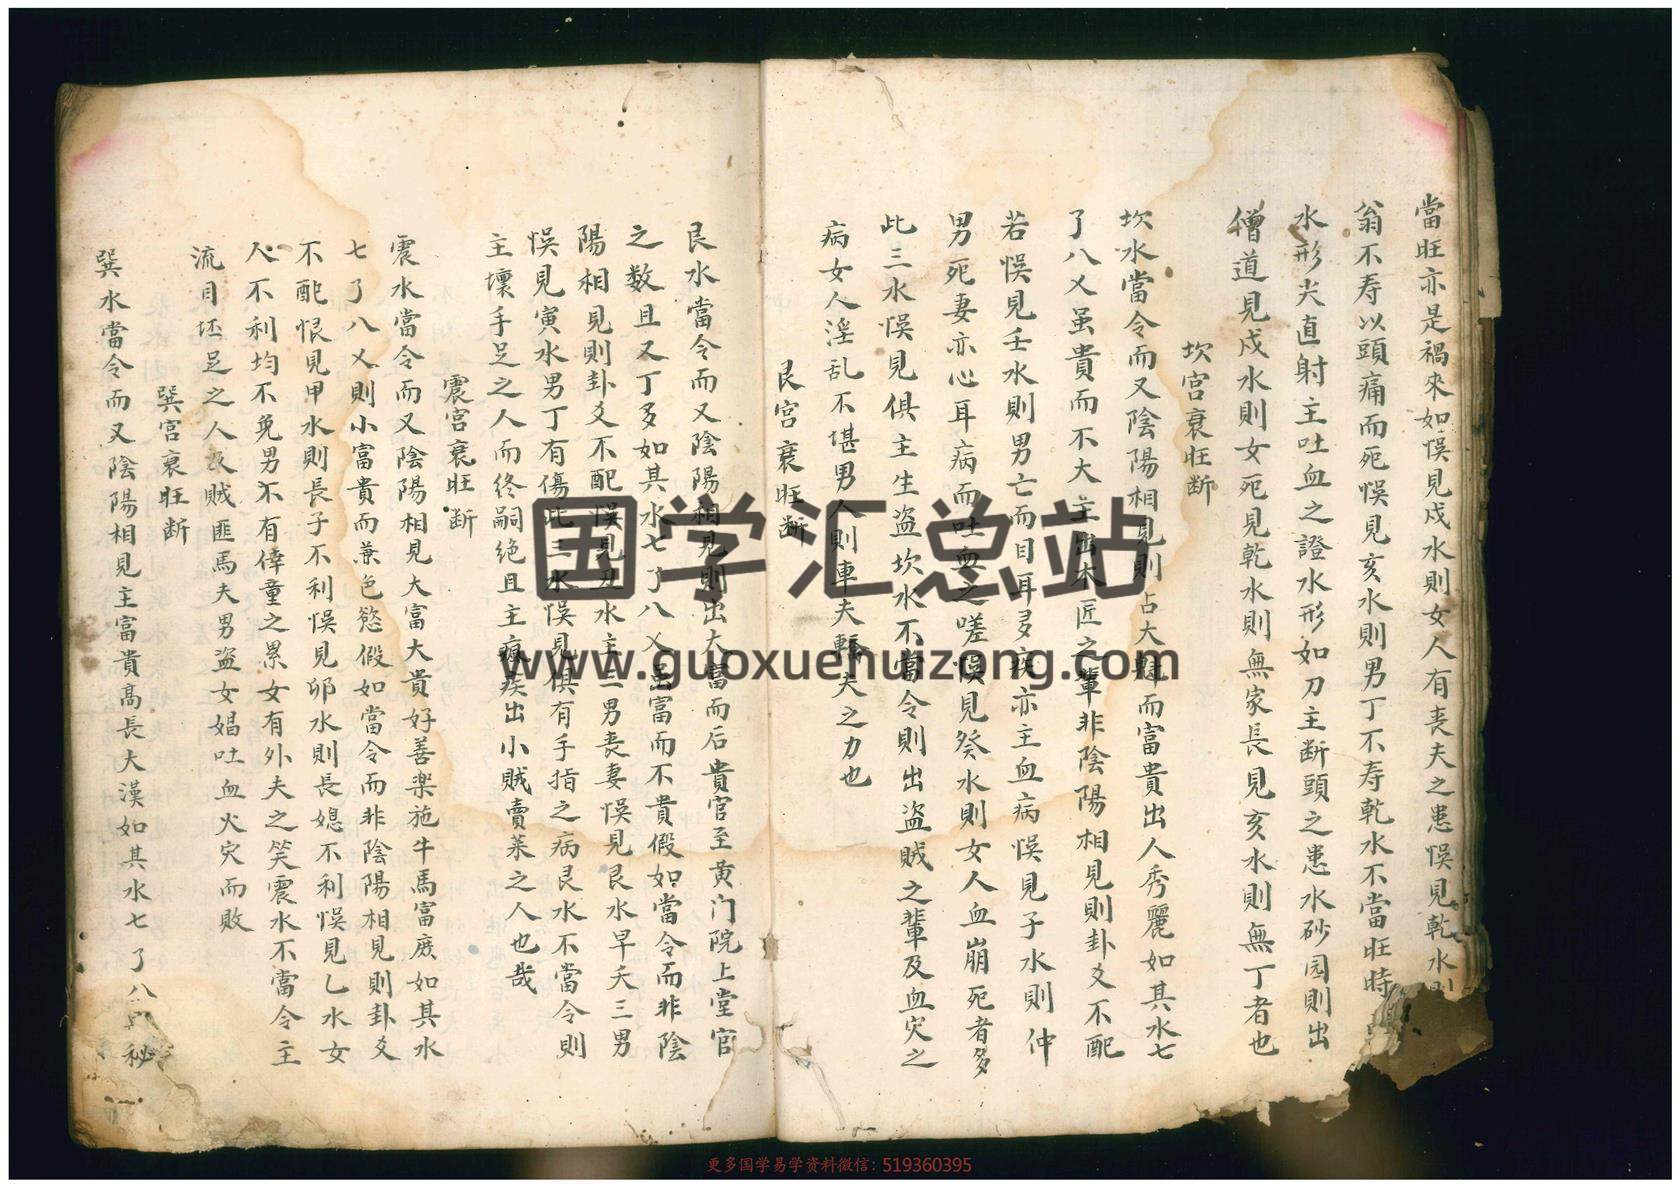 當旺亦是禍來如悮見戍水則女人有丧夫之患悮見乾水則
翁不寿以頭痛而死悮見亥水則男丁不寿乾水不當旺時
水形尖直射主吐血之證水形如刀主断頭之患水砂园則出
僧道見戍水則女死見乾水則無家長見亥水則無丁者也
坎宫衰旺断
坎水當令而又陰陽相見則占大魁而富貴出人秀麗如其水七
了八乂虽貴而不大主出木匠之輩非陰陽相見則卦爻不配
若悮見壬水則男亡而目耳多疾亦主血病悮見子水則仲
男死妻亦心耳病而吐血之嗟悮見癸水則女人血崩死者多
此三水悮見俱主生盗坎水不當令則出盗贼之輩及血灾之
病女人淫乱不堪男人則車夫轎夫之力也
艮宫衰旺断
艮水當令而又陰陽相見則出大富而后貴官至黄门院上堂官
之数且又丁多如其水七了八乂虽富而不貴假如當令而非陰
陽相見則卦爻不配悮見丑水主三男丧妻悮見艮水早夭三男
悮見寅水男丁有傷此三水悮見俱有手指之病艮水不當令則
主壞手足之人而终嗣绝且主疾出小贼賣菜之人也哉
震宫衰旺断
震水當令而又陰陽相見大富大貴好善楽施牛馬富庶如其水
七了八乂則小富貴而兼色慾假如當令而非陰陽相見則卦爻
不配悮見甲水則長子不利悮見卯水則長媳不利悮見乙水女
人不利均不免男有俸童之累女有外夫之笑震水不當令主
流目坯足之人及贼匪馬夫男盗女娼吐血火灾而败
巽宫衰旺断
巽水當令而又陰陽相見主富貴高長大漢如其水七了八
国学汇总站
www.guoxuehuizong.com
更多国学易学资料微信：519360395